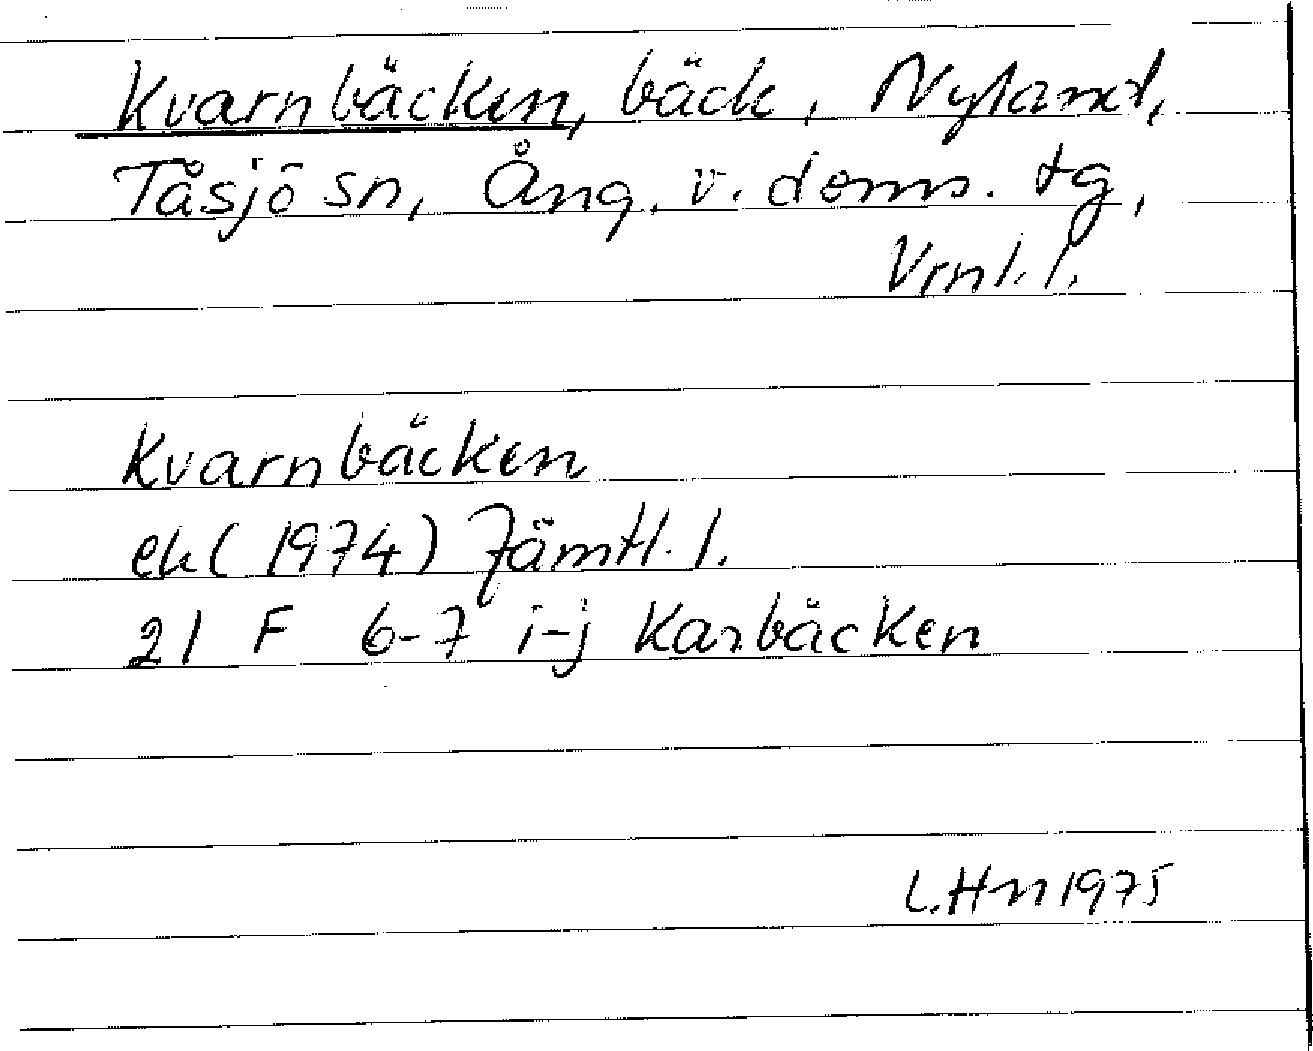 Kvarnbäcken, bäck, Nyland,
Tåsjö sn, Ång. v. doms. tg,
Vrnl. l.
Kvarnbäcken
ek (1974) Jämtl. l.
21 F 6-7 i-j Karbäcken
L.Hn 1975